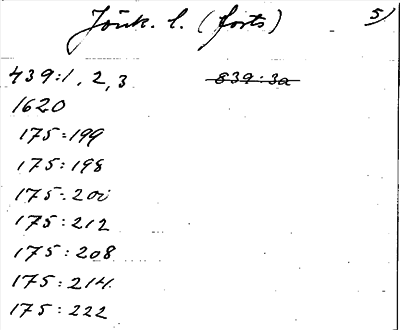 Jönk. l. (forts) 5)
439:1, 2, 3 839:3a
1620
175:199
175:198
175:201
175:212
175:208
175:214
175:222